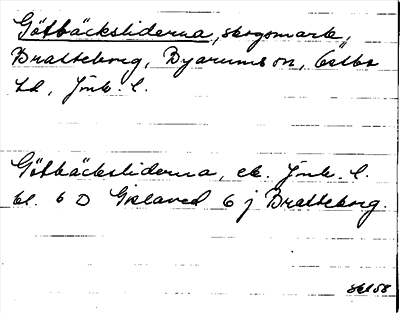 Götbäcksliderna, skogsmark,
Bratteborg, Byarums sn, Östbo
hd, Jönk. l.
Götbäcksliderna, ek. Jönk. l.
bl. 6 D Gislaved 6 j Bratteborg.